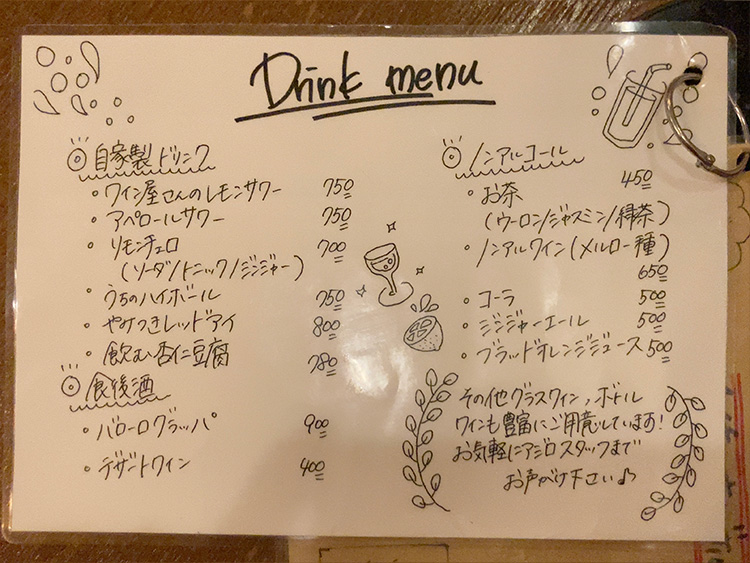 Drink menu
自家製ドリンク
・ワイン屋さんのレモンサワー 750
・アペロールサワー 750
・リモンチェロ 700
(ソーダ/トニック/ジンジャー)
・うちのハイボール 750
・やみつきレッドアイ 800
・飲む杏仁豆腐 780
食後酒
・バローログラッパ 900
・デザートワイン 400
ノンアルコール
・お茶 450
(ウーロン/ジャスミン/緑茶)
・ノンアルワイン(メルロー種)
650
・コーラ 500
・ジンジャーエール 500
・ブラッドオレンジジュース 500
その他グラスワイン、ボトル
ワインも豊富にご用意しています!
お気軽にアジロスタッフまで
お声がけ下さい♪